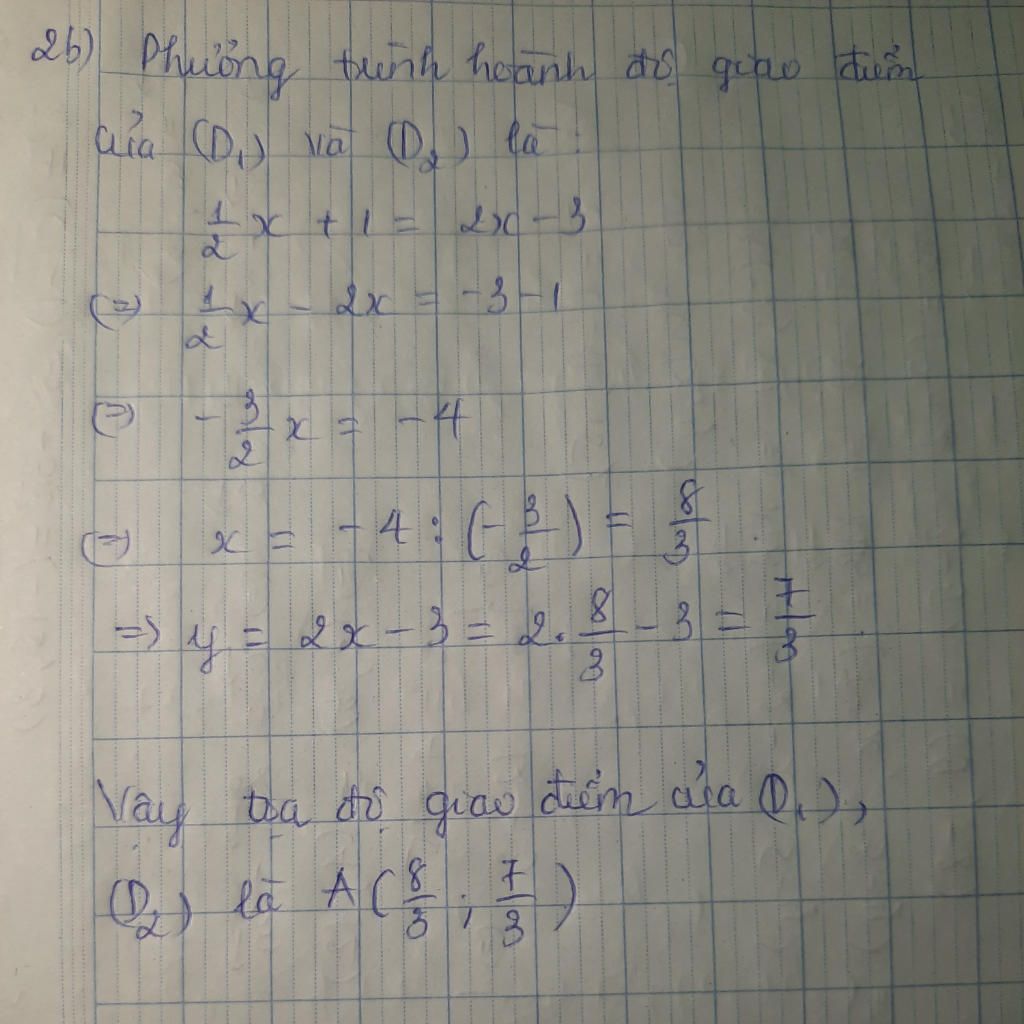 2b) Phương trình hoành độ giao điểm
của (D₁) và (D₂) là :
1/2 x + 1 = 2x - 3
(=) 1/2 x - 2x = -3 - 1
(=) - 3/2 x = - 4
(=) x = - 4 : (- 3/2) = 8/3
=> y = 2x - 3 = 2. 8/3 - 3 = 7/3
Vậy tọa độ giao điểm của (D₁),
(D₂) là A (8/3 ; 7/3)